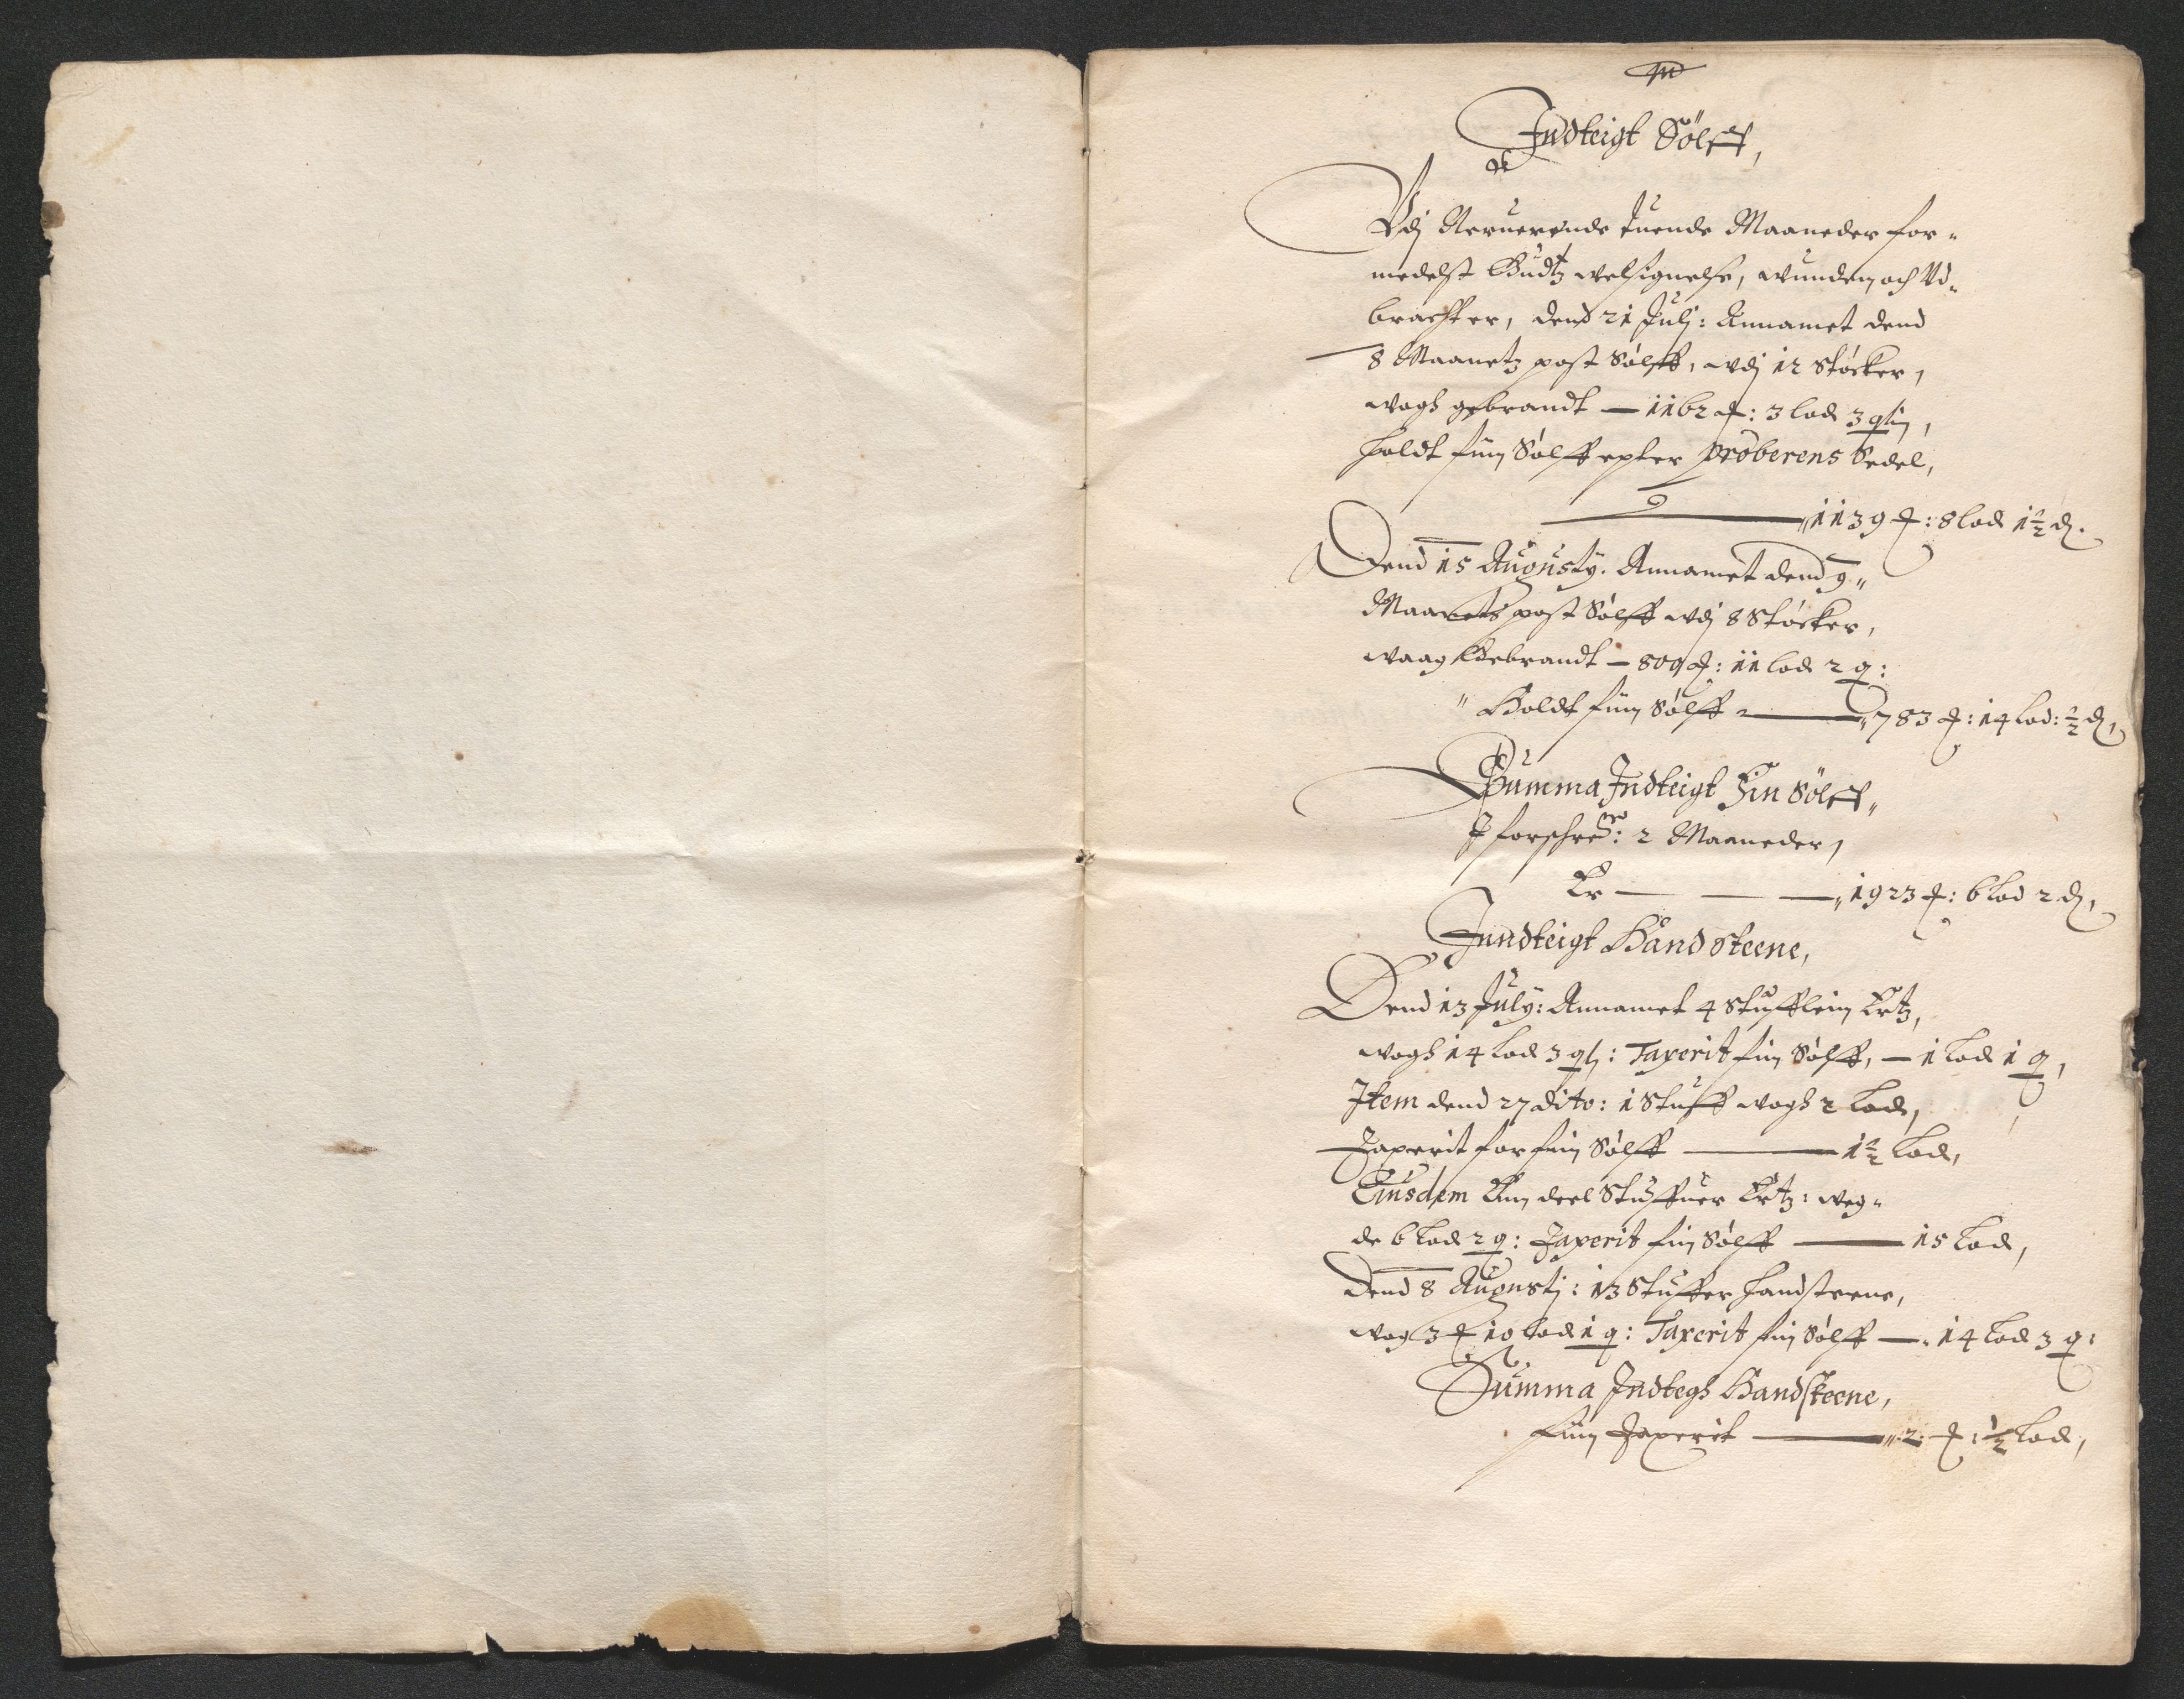 Indteigt Sölff,
Vdj Neruerende tuende Maaneder for„
medelst Gudtz velsignelse, wunden och Ud„
bracht er, dend 21 Julj: Annamet dend
8 Maanetz post Sölff, vdj 12 Støcker,
wogh gebrandt — 1162 ℔: 3 lod 3 qti,
holdt fiin Sölff epter Proberens Sedel,
— 1139 ℔: 8 lod 1½ ₰.
Dend 15 Augusty. Annamet dend 9„
Maanets post Sölff vdj 8 Støcker,
waag Gebrandt — 809 ℔: 11 lod 2 q:
" Holdt fiin Sölff — 783 ℔: 14 lod: ½ ₰,
Summa Indteigt Fin Sölff„
I forschrefne: 2 Maaneder,
Er — — — 1923 ℔: 6 lod 2 ₰,
Inndteigt Handsteene,
Dend 13 July: Annamet 4 Stufflein Ertz,
wogh 14 Lod 3 q: Taxerit fin Sölff, — 1 Lod 1 q,
Item dend 27 dito: 1 Stuff wogh 2 Lod,
Taxerit for fiin Sölff — 1½ Lod,
Eiusdem Een deel Stuffuer Ertz: weg„
de 6 Lod 2 q: Taxerit fin Sölff — 15 Lod,
Dend 8 Augustj: 13 Stuffer handsteene,
wog 3 ℔ 10 Lod 1 q: Taxerit fin Sölff — 14 Lod 3 q:
Summa Indtegh Handsteene,
fiin Taxerit — 2 ℔: ½ Lod,